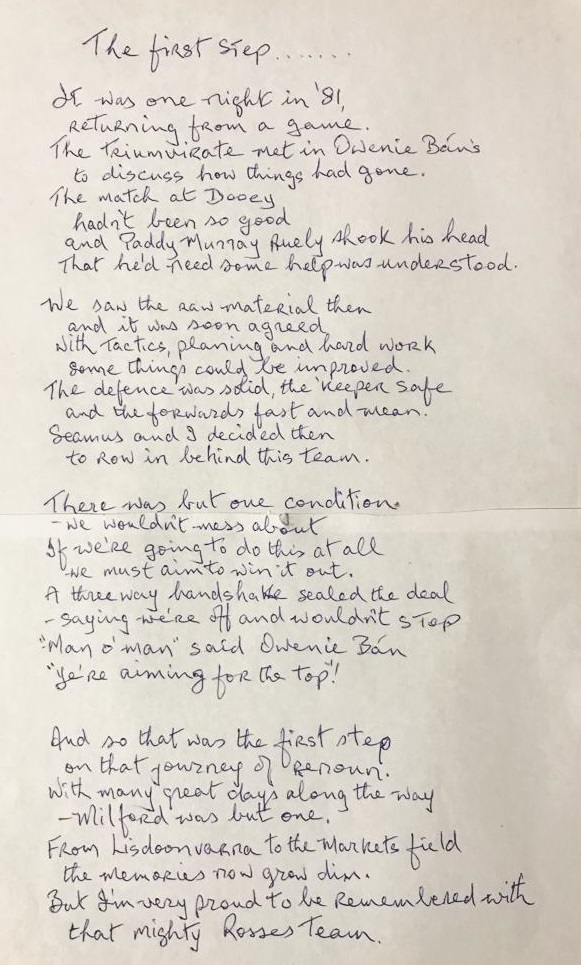 The first step.......
It was one night in '81,
returning from a game.
The Triumvirate met in Owenie Bán's
to discuss how things had gone.
The match at Dooey
hadn't been so good
and Paddy Murray Ruely shook his head
That he'd need some help was understood.
We saw the raw material then
and it was soon agreed
With Tactics, planing and hard work
some things could be improved.
The defence was solid, the 'keeper safe
and the forwards fast and mean.
Seamus and I decided then
to row in behind this team.
There was but one condition
- we wouldn't mess about
If we're going to do this at all
- we must aim to win it out.
A three way handshake sealed the deal
- saying we're off and wouldn't stop
"Man o' man" said Owenie Bán
"ye're aiming for the top"!
And so that was the first step
on that journey of renoun.
With many great days along the way
- Milford was but one.
From Lisdoonvarna to the Markets field
the memories now grow dim.
But I'm very proud to be remembered with
that mighty Rosses Team.